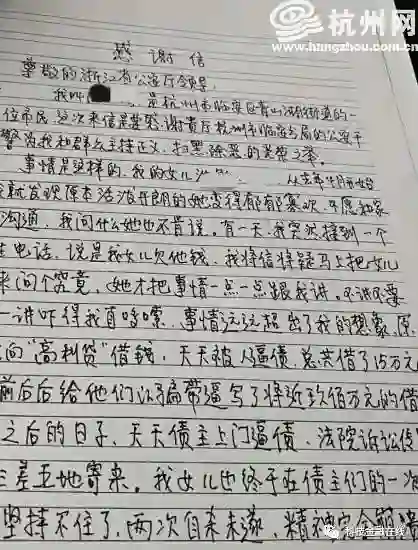 杭州网
www.hangzhou.com.cn
感谢信
尊敬的浙江省公安厅领导:
我叫 是杭州市临安区青山湖街道的一
位市民,这次来信是要感谢贵厅杭州市临安分局的公安干
警为我和群众主持正义、扫黑除恶的英荣之举。
事情是这样的,我的女儿 从去年4月开始
我就发现原本活泼开朗的她变得郁郁寡欢,不愿和家
沟通,我问什么她也不肯说。有一天,我突然接到一个
电话,说是我女儿欠他钱,我将信将疑马上把女儿
来问个究竟,她才把事情一点一点跟我讲,不讲不要
一讲吓得我直哆嗦,事情远远超出了我的想象,原
向“高利贷”借钱,天天被人逼债,总共借了15万元
前后后给他们以骗带逼写了将近玖佰万元的借
之后的日子,天天债主上门逼债,法院诉讼债
三差五地寄来。我女儿也终于在债主们的一次
坚持不住了,两次自杀未遂,精神完全崩溃
科技金融在线